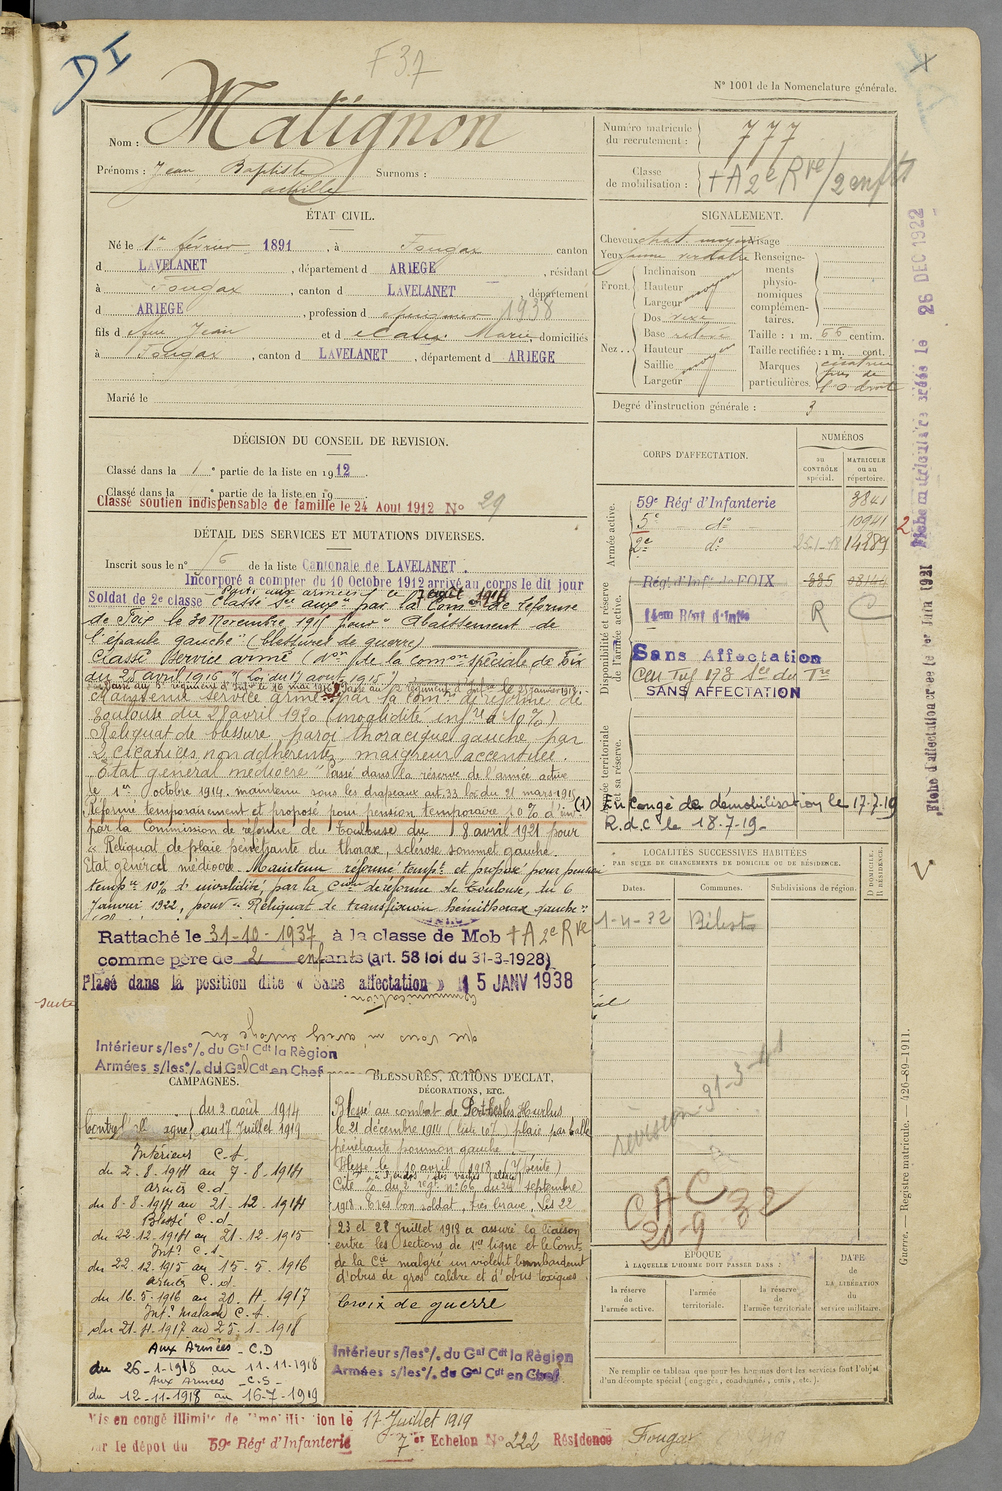 DI
F 37
N° 1001 de la Nomenclature générale.
Nom : Matignon
Prénoms : Jean Baptiste achille Surnoms :
ÉTAT CIVIL.
Né le 1er février 1891, à Fougax canton
d LAVELANET, département d ARIEGE, résidant
à Fougax, canton d LAVELANET, département
d ARIEGE, profession d 1938
fils d feu Jean et d Marie, domiciliés
à Fougax, canton d LAVELANET, département d ARIEGE
Marié le
DÉCISION DU CONSEIL DE REVISION.
Classé dans la 1e partie de la liste en 1912
Classé dans la e partie de la liste en 19
Classé soutien indispensable de famille le 24 Aout 1912 N° 29
DÉTAIL DES SERVICES ET MUTATIONS DIVERSES.
Inscrit sous le n° de la liste Cantonale de LAVELANET.
Incorporé a compter du 10 Octobre 1912 arrivé au corps le dit jour
Soldat de 2e classe Parti aux armées le 7 août 1914
Classé Ser auxre par la Comon de réforme
de Foix le 30 Novembre 1915 pour "Abaissement de
l'épaule gauche" (blessures de guerre)
Classé service armé (don de la comon spéciale de Foix
du 20 avril 1916 (Loi du 17 août 1915)
Passé au 5e régiment d'Infie le 16 mai 1916. Passé au 2e régiment d'Infie le 25 janvier 1918.
Maintenu service armé par la Comon de réforme de
Toulouse du 27 avril 1920 (invalidité infre à 10%)
Reliquat de blessure, paroi thoracique gauche par
2 cicatrices non adhérentes, maigreur accentuée.
Etat général médiocre" Passé dans la réserve de l'armée active
le 1er octobre 1914. maintenu sous les drapeaux art. 33 loi du 21 mars 1915 (1)
Réformé temporairement et proposé pour pension temporaire 10% d'inv.
par la Commission de réforme de Toulouse du 8 avril 1921 pour
"Reliquat de plaie pénétrante du thorax, sclérose sommet gauche.
Etat général médiocre. Maintenu réformé tempt et proposé pour pension
tempre 10% d'invalidité par la Cion de réforme de Toulouse, du 6
Janvier 1922, pour "Reliquat de transfixion hémithorax gauche".
Rattaché le 31-10-1937 à la classe de Mob + A 2e Rve
comme père de 2 enfants (art. 58 loi du 31-3-1928)
Placé dans la position dite « Sans affectation » 15 JANV 1938
Intérieur s/les°/. du Gal Cdt la Région
Armées s/les°/. du Gal Cdt en Chef
suite
CAMPAGNES.
Contre l'Allemagne du 2 août 1914
au 17 Juillet 1919
Intérieur C.S.
du 2-8-1914 au 7-8-1914
Armées C.d.
du 8-8-1914 au 21-12-1914
Blessé C.d.
du 22-12-1914 au 21-12-1915
Intr C.S.
du 22-12-1915 au 15-5-1916
Armées C.d.
du 16-5-1916 au 20-4-1917
Intr malade C.S.
du 21-4-1917 au 25-1-1918
Aux Armées - C.D
du 26-1-1918 au 11-11-1918
Aux Armées - C.S
du 12-11-1918 au 16-7-1919
BLESSURES, ACTIONS D'ÉCLAT,
DÉCORATIONS, ETC.
Blessé au combat de Perthes les Hurlus
le 21 décembre 1914 plaie par balle
pénétrante poumon gauche.
Blessé le 10 avril 1918
Cité % du 2e régt n° 66 du 24 septembre
1918. Très bon soldat, très brave, Les 22
23 et 28 Juillet 1918 a assuré la liaison
entre les sections de 1re ligne et le Comt
de la Cie malgré un violent bombardement
d'obus de gros calibre et d'obus toxiques
Croix de guerre
Intérieur s/les°/. du Gal Cdt la Région
Armées s/les°/. du Gal Cdt en Chef
Mis en congé illimité de démobilisation le 17 Juillet 1919
par le dépot du 59e Régt d'Infanterie 7er Echelon N° 222 Résidence Fougax
Numéro matricule du recrutement : 777
Classe de mobilisation : + A 2e Rve / 2 enfts
SIGNALEMENT.
Cheveux chat. moyen Visage
Yeux jaune verdâtre
Front. Inclinaison
Hauteur moyen
Largeur
Nez.. Dos vexe
Base relevé
Hauteur
Saillie moyen
Largeur
Renseignements physionomiques complémentaires.
Taille : 1 m. 66 centim.
Taille rectifiée : 1 m. cent.
Marques particulières. cicatrice près de l'O droit
Degré d'instruction générale : 3
CORPS D'AFFECTATION.
NUMÉROS
AU CONTRÔLE spécial.
MATRICULE ou au répertoire.
Armée active.
59e Régt d'Infanterie 3841
5e do 10941
2e do 14289
Disponibilité et réserve de l'armée active.
Régt d'Inf. de FOIX
R C
Sans Affectation
SANS AFFECTATION
Armée territoriale et sa réserve.
En congé de démobilisation le 17-7-19
R.d.C le 18-7-19
LOCALITÉS SUCCESSIVES HABITÉES
PAR SUITE DE CHANGEMENTS DE DOMICILE OU DE RÉSIDENCE.
Dates. Communes. Subdivisions de région. D DOMICILE. R RÉSIDENCE.
1-4-32 Bélesta
révision 31-3-41
CAC 32
20-9
ÉPOQUE
À LAQUELLE L'HOMME DOIT PASSER DANS :
la réserve de l'armée active.
l'armée territoriale.
la réserve de l'armée territoriale.
DATE DE LA LIBÉRATION du service militaire.
Ne remplir ce tableau que pour les hommes dont les services font l'objet
d'un décompte spécial (engagés, condamnés, omis, etc.).
Fiche matriculaire créée le 26 DEC 1922
Fiche d'affectation créée le 1er Juin 1921
Guerre. — Registre matricule. — 426-89-1911.